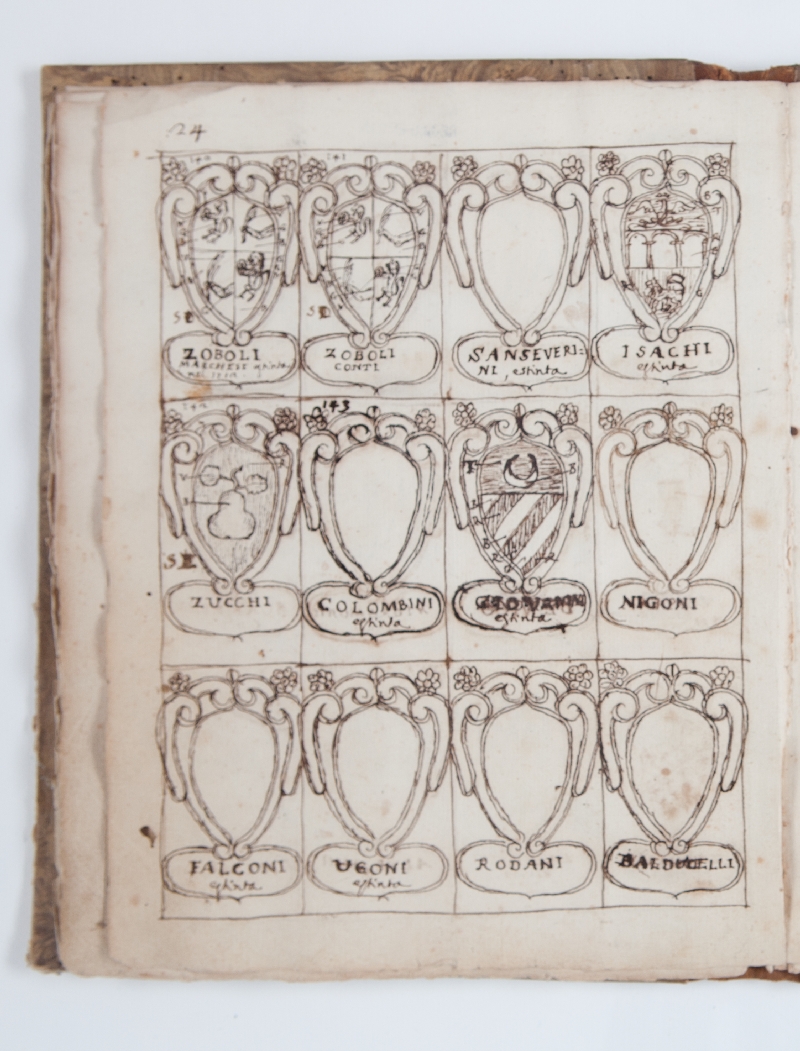 24
140 141
S
S
ZOBOLI
MARCHESI estinta
ZOBOLI
CONTI
SANSEVERI=
NI, estinta
ISACHI
estinta
143
S
ZUCCHI
COLOMBINI
estinta
estinta
NIGONI
FALCONI
estinta
UGONI
estinta
RODANI
BALDUCELLI